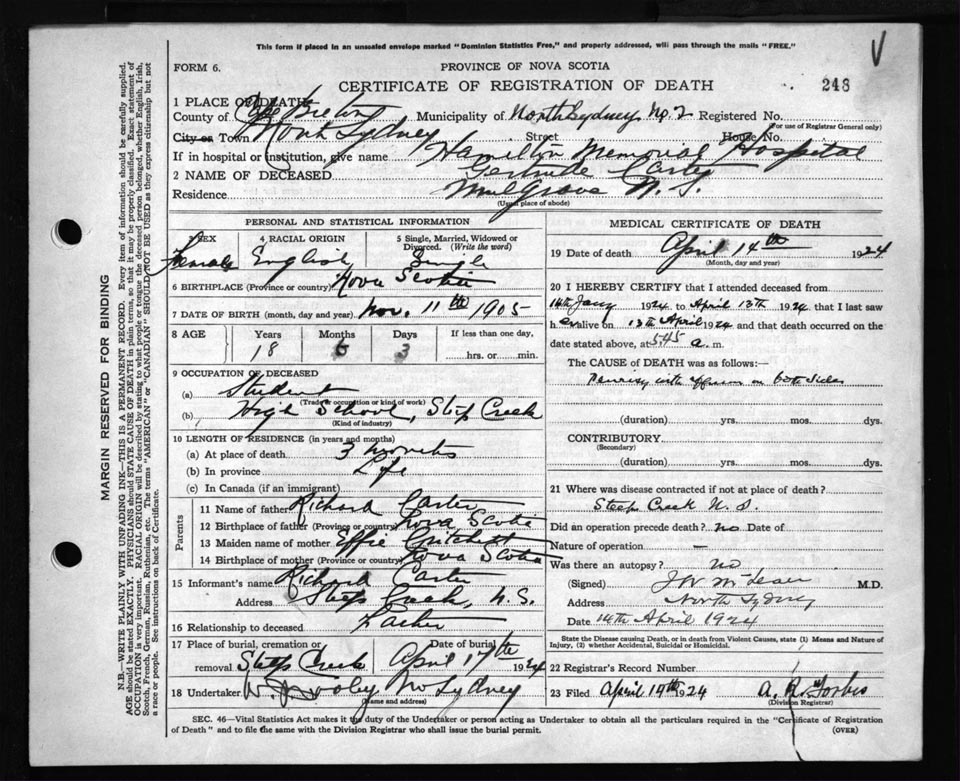 This form if placed in an unsealed envelope marked "Dominion Statistics Free," and properly addressed, will pass through the mails "FREE."
FORM 6.
PROVINCE OF NOVA SCOTIA
CERTIFICATE OF REGISTRATION OF DEATH
248
1 PLACE OF DEATH
County of Cape Breton Municipality of North Sydney No. 2 Registered No.
(For use of Registrar General only)
City or Town North Sydney Street House No.
If in hospital or institution, give name Hamilton Memorial Hospital
2 NAME OF DECEASED Gertrude Carter
Residence Mulgrave N. S.
(Usual place of abode)
PERSONAL AND STATISTICAL INFORMATION
3 SEX 4 RACIAL ORIGIN 5 Single, Married, Widowed or Divorced. (Write the word)
Female English Single
6 BIRTHPLACE (Province or country) Nova Scotia
7 DATE OF BIRTH (month, day and year) Nov. 11th 1905
8 AGE Years Months Days If less than one day,
18 3 hrs. or min.
9 OCCUPATION OF DECEASED
(a) Student
(Trade or occupation or kind of work)
(b) High School, Steep Creek
(Kind of industry)
10 LENGTH OF RESIDENCE (in years and months)
(a) At place of death 3 months
(b) In province Life
(c) In Canada (if an immigrant)
Parents
11 Name of father Richard Carter
12 Birthplace of father (Province or country) Nova Scotia
13 Maiden name of mother Effie Critchett
14 Birthplace of mother (Province or country) Nova Scotia
15 Informant's name Richard Carter
Address Steep Creek, N.S.
16 Relationship to deceased Father
17 Place of burial, cremation or removal Steep Creek Date of burial April 17th 1924
18 Undertaker No Sydney
(Name and address)
MEDICAL CERTIFICATE OF DEATH
19 Date of death April 14th 1924
(Month, day and year)
20 I HEREBY CERTIFY that I attended deceased from
14th Jany 1924 to April 13th 1924 that I last saw
her alive on 13th April 1924 and that death occurred on the
date stated above, at 5.45 a. m.
The CAUSE of DEATH was as follows:
Pleurisy with effusion on both sides
(duration) yrs. mos. dys.
CONTRIBUTORY
(Secondary)
(duration) yrs. mos. dys.
21 Where was disease contracted if not at place of death?
Steep Creek N. S.
Did an operation precede death? no Date of
Nature of operation —
Was there an autopsy? no
(Signed) M.D.
Address North Sydney
Date 14th April 1924
State the Disease causing Death, or in death from Violent Causes, state (1) Means and Nature of Injury, (2) whether Accidental, Suicidal or Homicidal.
22 Registrar's Record Number
23 Filed April 1924 A. R. Forbes
(Division Registrar)
SEC. 46—Vital Statistics Act makes it the duty of the Undertaker or person acting as Undertaker to obtain all the particulars required in the "Certificate of Registration
of Death" and to file the same with the Division Registrar who shall issue the burial permit.
(OVER)
MARGIN RESERVED FOR BINDING
N.B.—WRITE PLAINLY WITH UNFADING INK—THIS IS A PERMANENT RECORD. Every item of information should be carefully supplied.
AGE should be stated EXACTLY. PHYSICIANS should STATE CAUSE OF DEATH in plain terms, so that it may be properly classified. Exact statement of
OCCUPATION is very important. RACIAL ORIGIN will be described by stating to what people or tongue the deceased person belonged, whether English, Irish,
Scotch, French, German, Russian, Ruthenian, etc. The terms "AMERICAN" or "CANADIAN" SHOULD NOT BE USED as they express citizenship but not
a race or people. See instructions on back of Certificate.